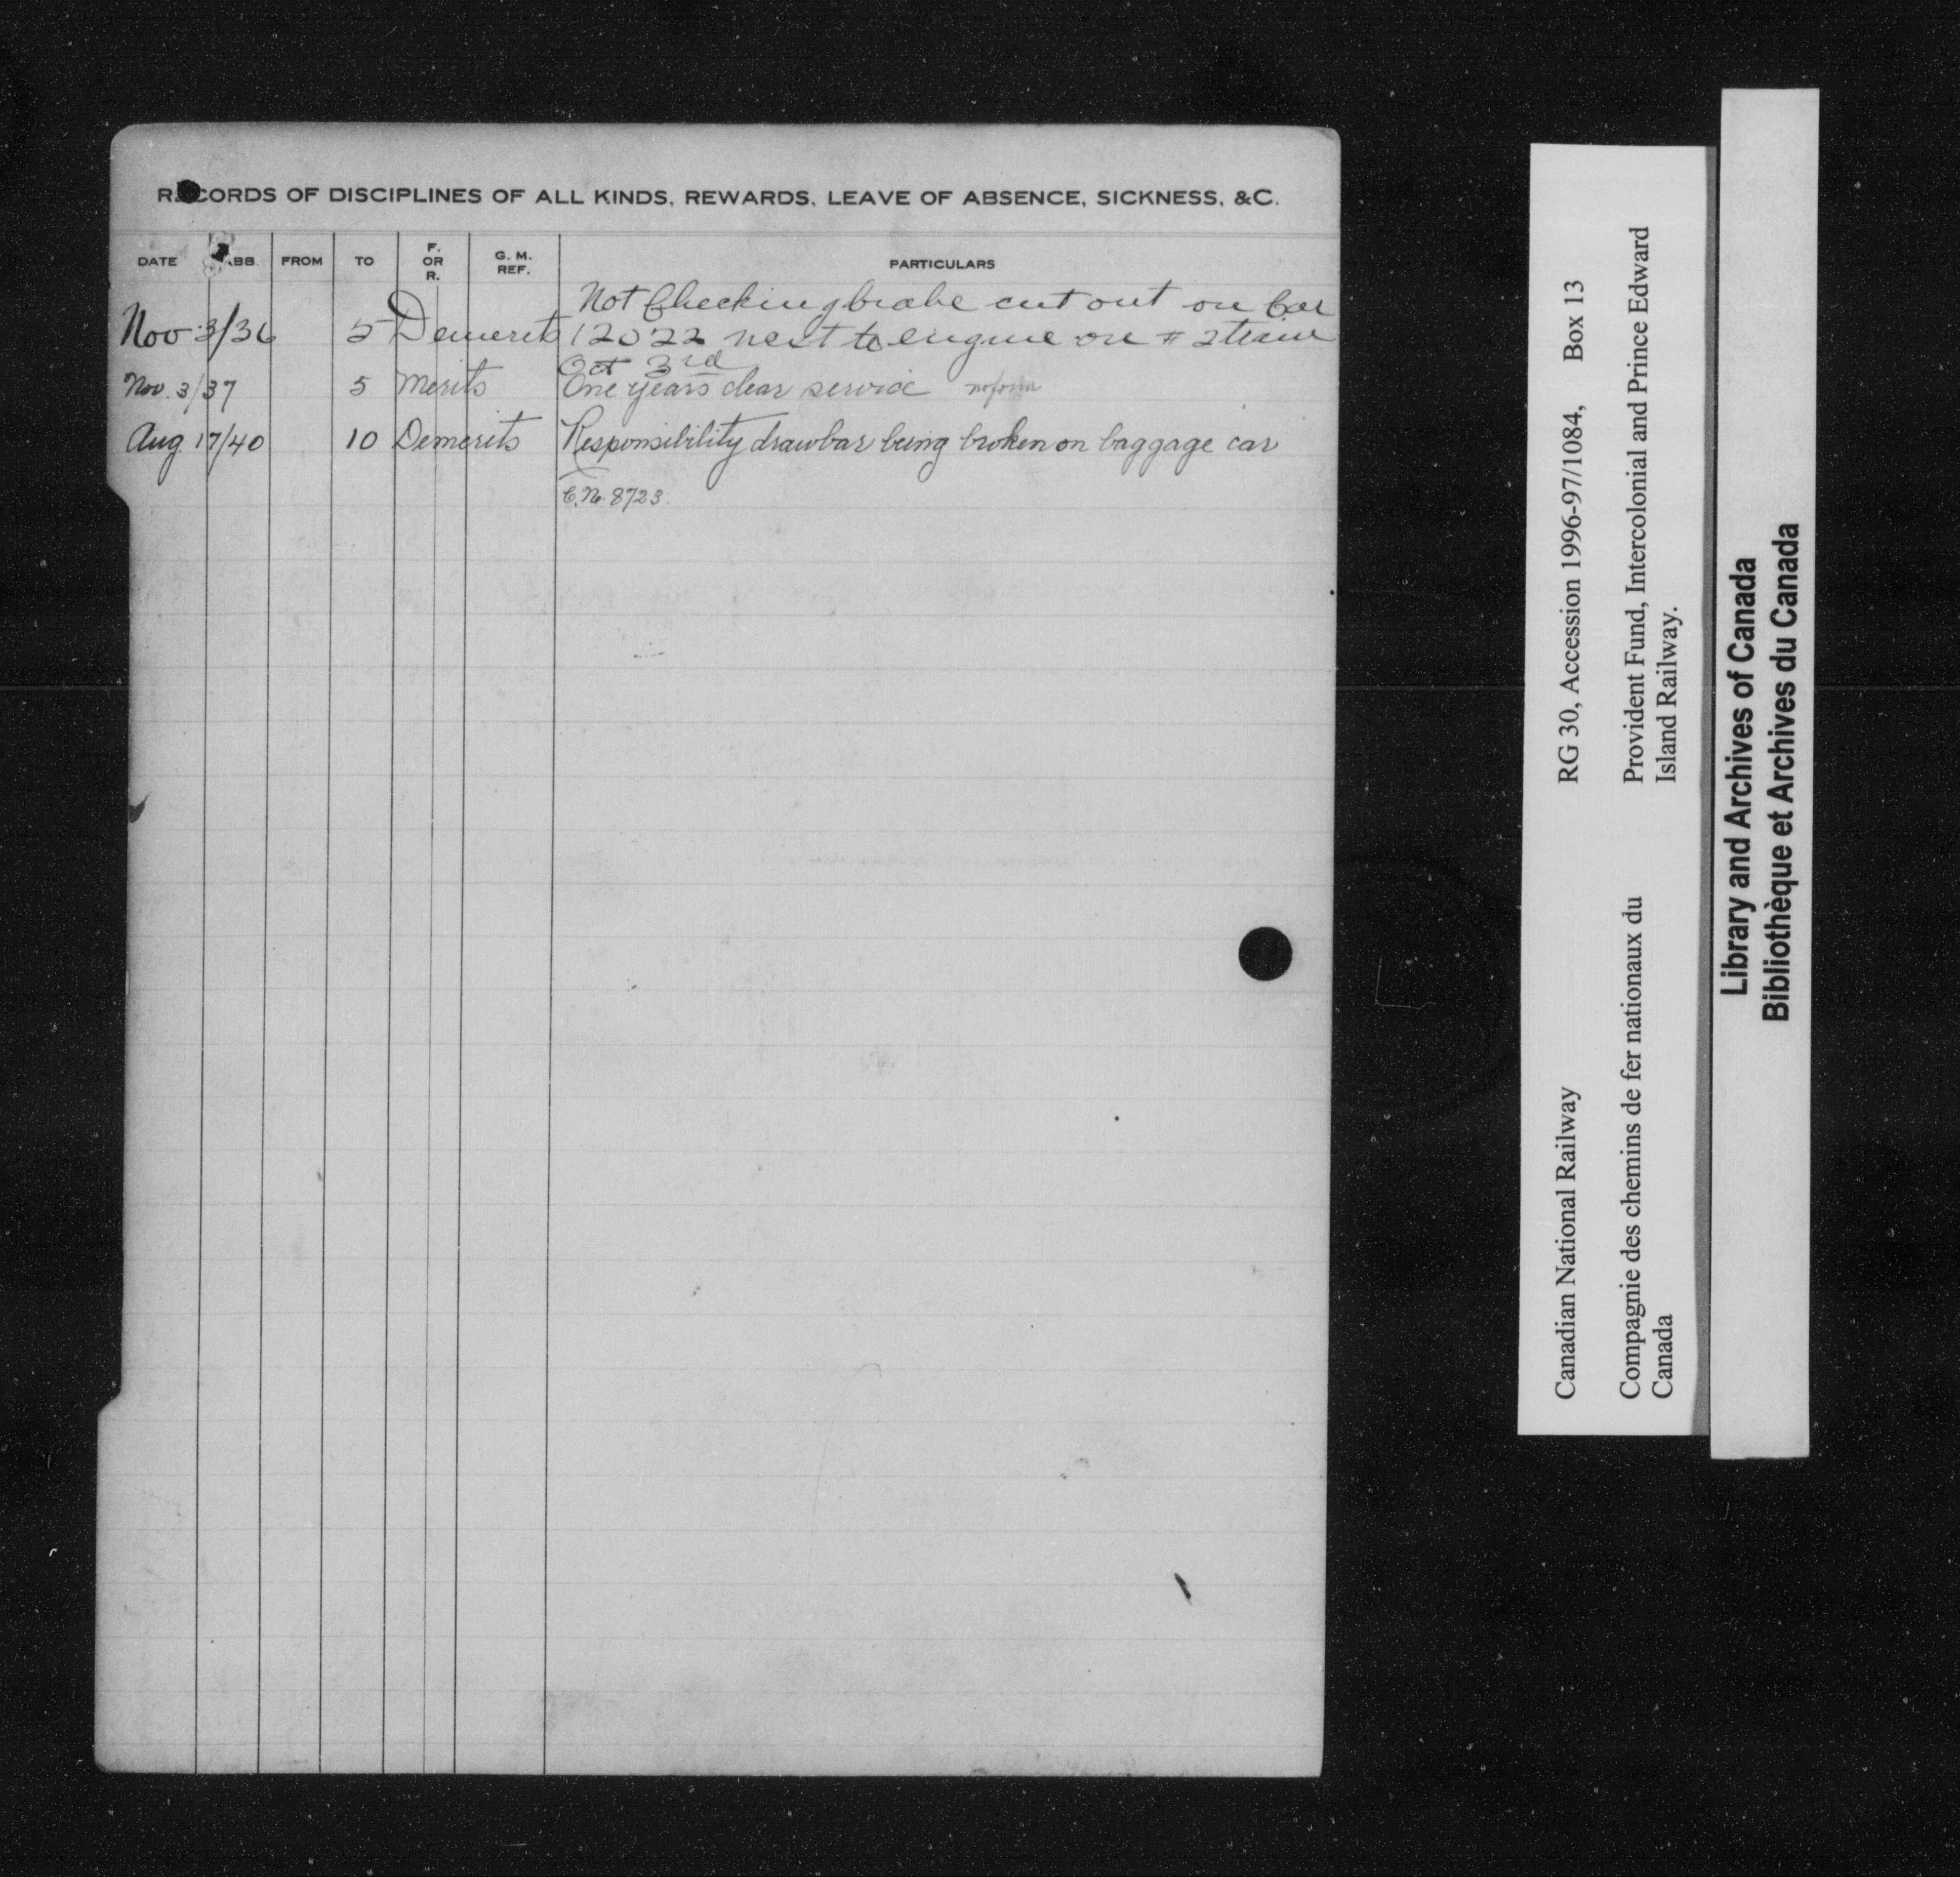 RECORDS OF DISCIPLINES OF ALL KINDS, REWARDS, LEAVE OF ABSENCE, SICKNESS, &C.
DATE ABB FROM TO F. OR R. G. M. REF. PARTICULARS
Not Checking brake cut out on Car
Nov 3/36 5 Demerits 12022 next to engine on # 2 train
Oct 3rd
Nov. 3/37 5 Merits One years clear service no form
Aug 17/40 10 Demerits Responsibility drawbar being broken on baggage car
C.N. 8723.
Canadian National Railway RG 30, Accession 1996-97/1084, Box 13
Compagnie des chemins de fer nationaux du Canada
Provident Fund, Intercolonial and Prince Edward
Island Railway.
Library and Archives of Canada
Bibliothèque et Archives du Canada